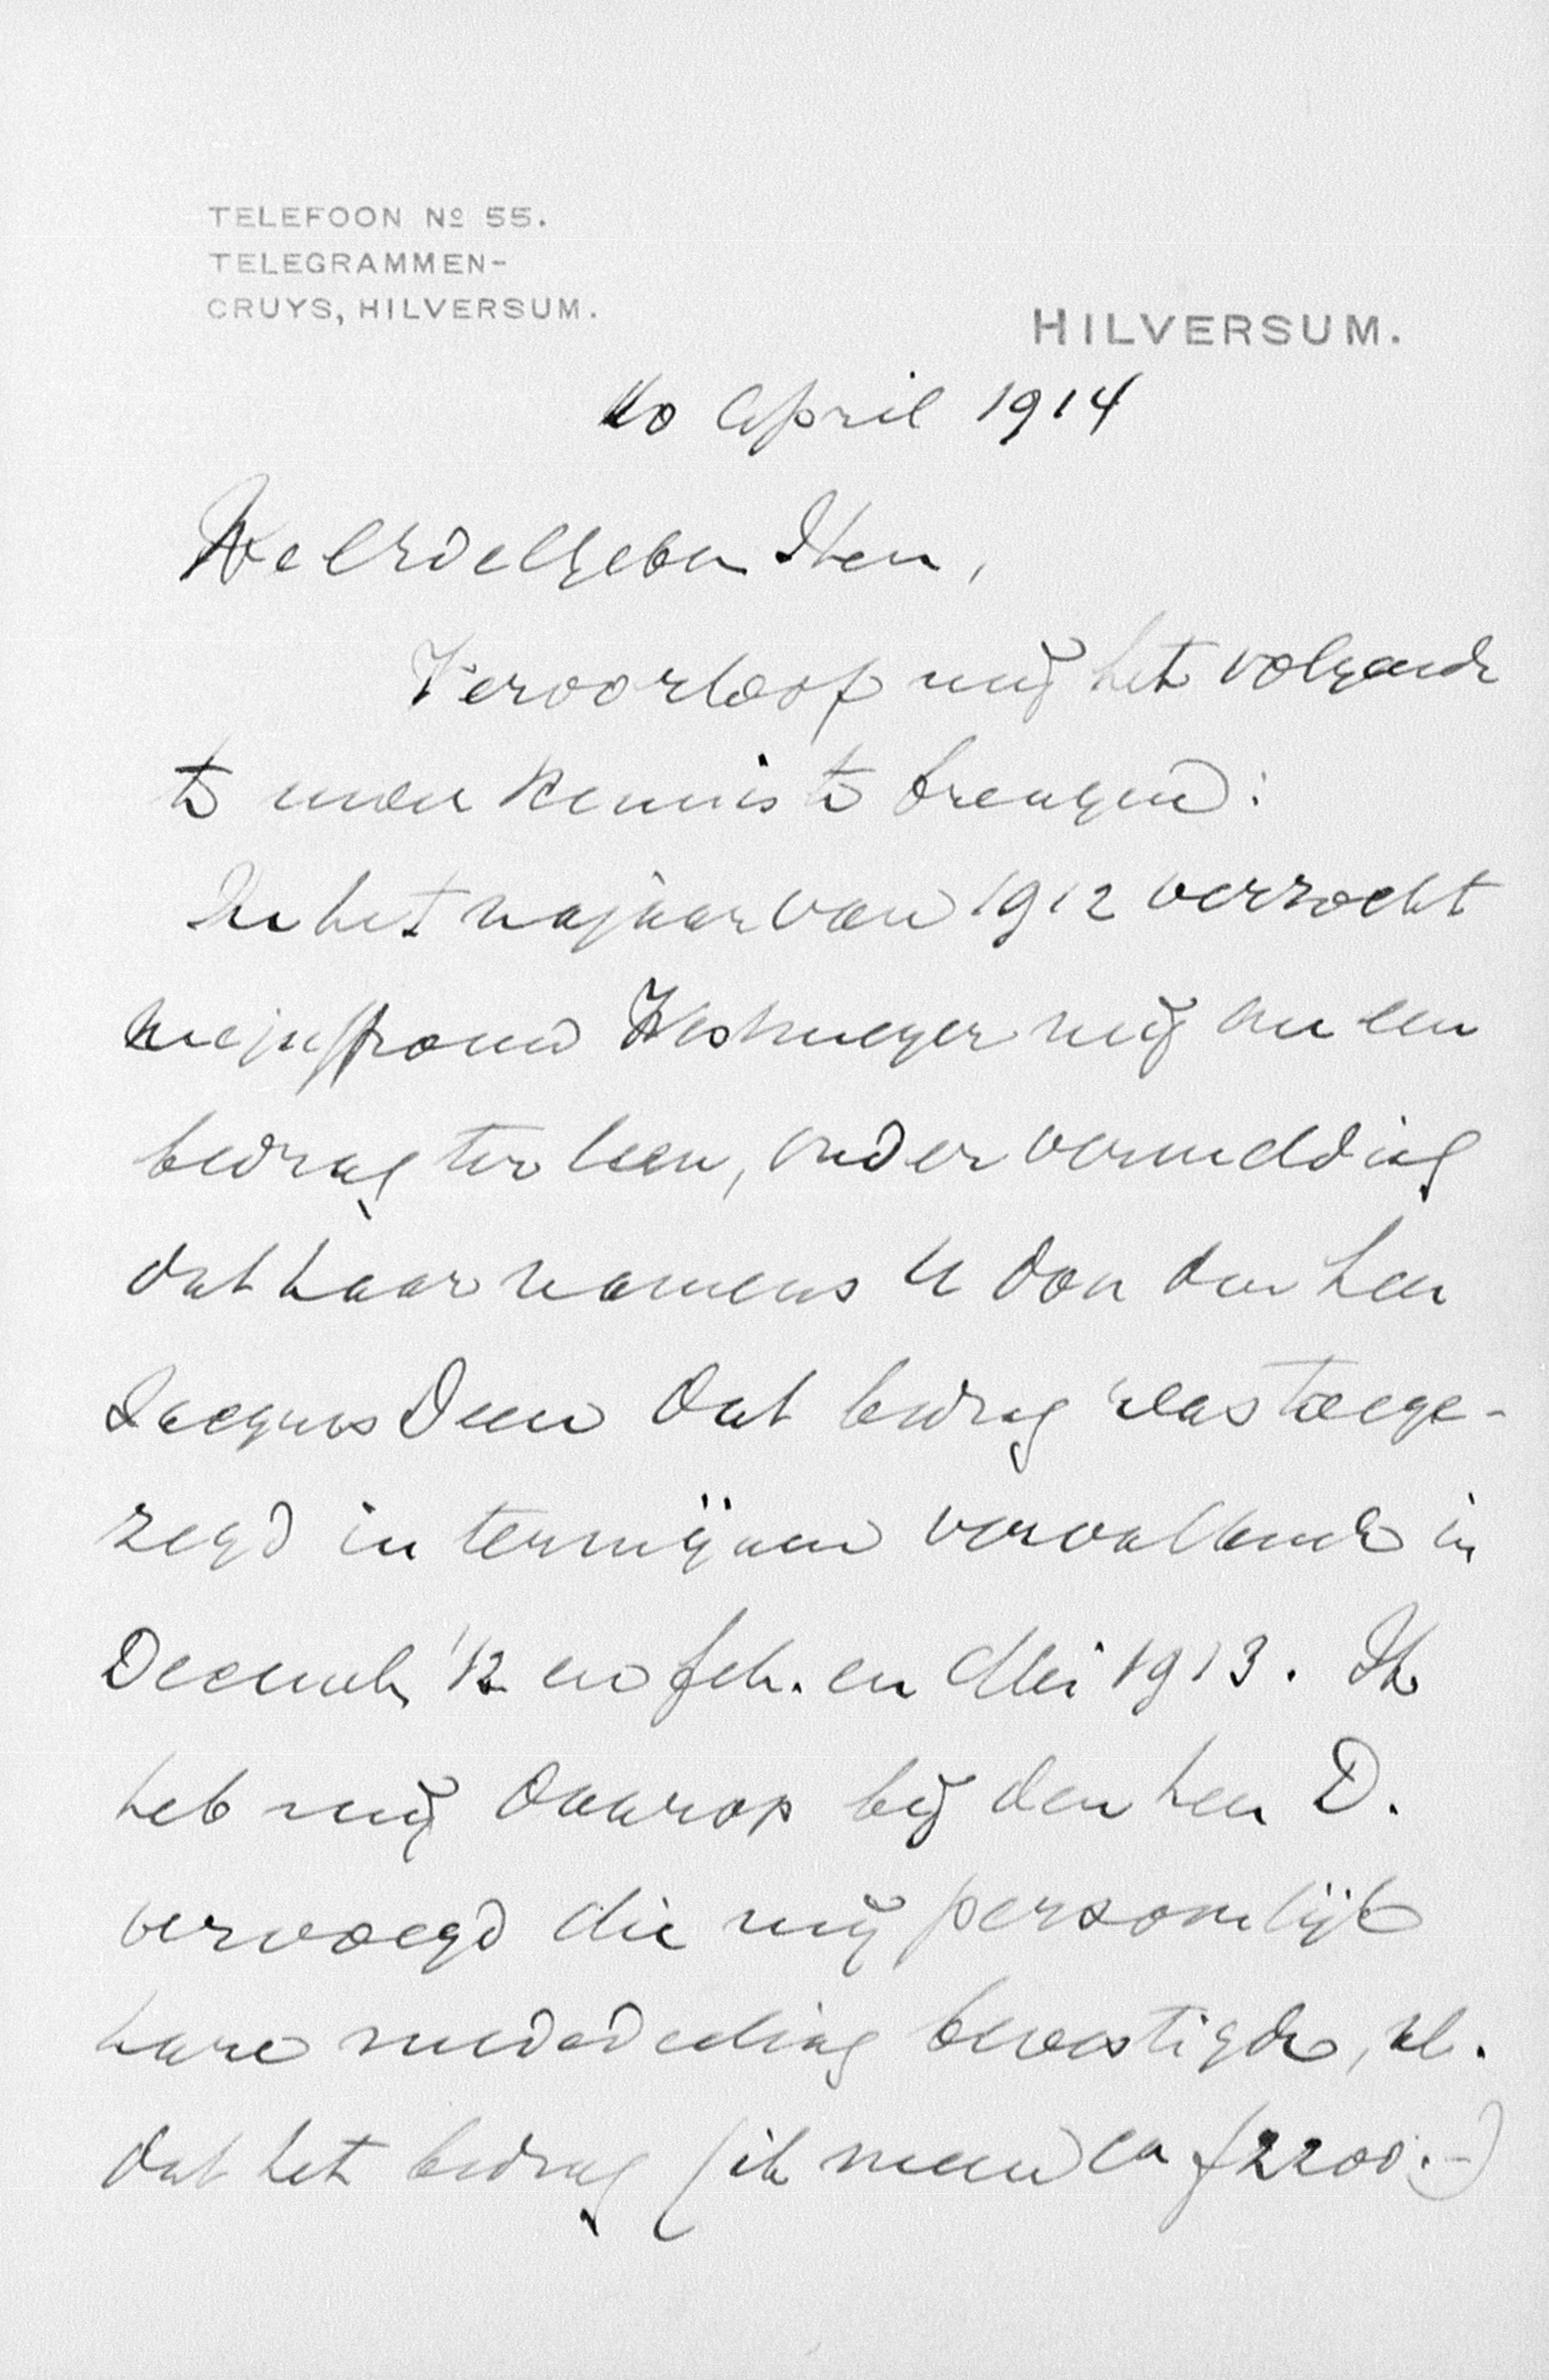 TELEFOON Nº 55.
TELEGRAMMEN-
CRUYS, HILVERSUM.
HILVERSUM.
10 April 1914
WelEdelgeboren Heer,
Veroorloof mij het volgende
te uwer kennis te brengen:
In het najaar van 1912 verzocht
mejuffrouw Westmeyer mij om een
bedrag ter leen, onder vermelding
dat haar namens U door den heer
Jacques Deen dat bedrag was toege-
zegd in termijnen vervallende in
Decemb. '12 en feb. en Mei 1913. Ik
heb mij daarop bij den heer D.
vervoegd die mij persoonlijk
hare mededeeling bevestigde, nl.
dat het bedrag (ik meen ca f2200.-)